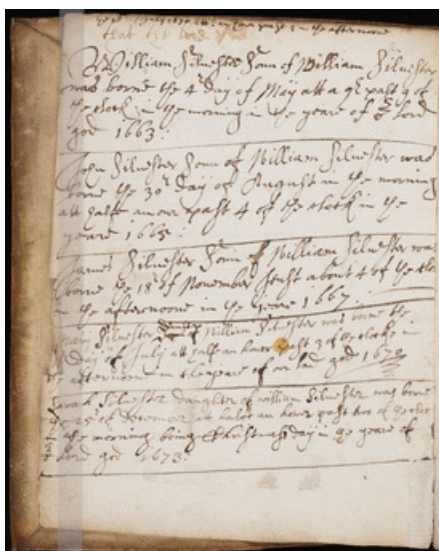 past in the afternoone
that the
William Silvester Sonn of William Silvester
was borne the 4 day of May att a qr past 9 of
the clock in the morning in the yeare of lord
god 1663:
John Silvester Sonn of William Silvester was
borne the 30th day of August in the morning
att halfe an ower past 4 of the clock in the
yeare 1665:
James Silvester Sonn of William Silvester was
borne the 18 of November Just about 4 of the
in the afternoone in the yeare 1667.
Mary Silvester William Silvester was borne the
day of July att half an hower past 3 of clocke in
the afternoone in the yeare of god 1670
Sarah Silvester daughter of william Silvester was borne
the 25th of December att halfe an hower past two of the
the morning being Christmas day in the yeare of
lord god 1673: